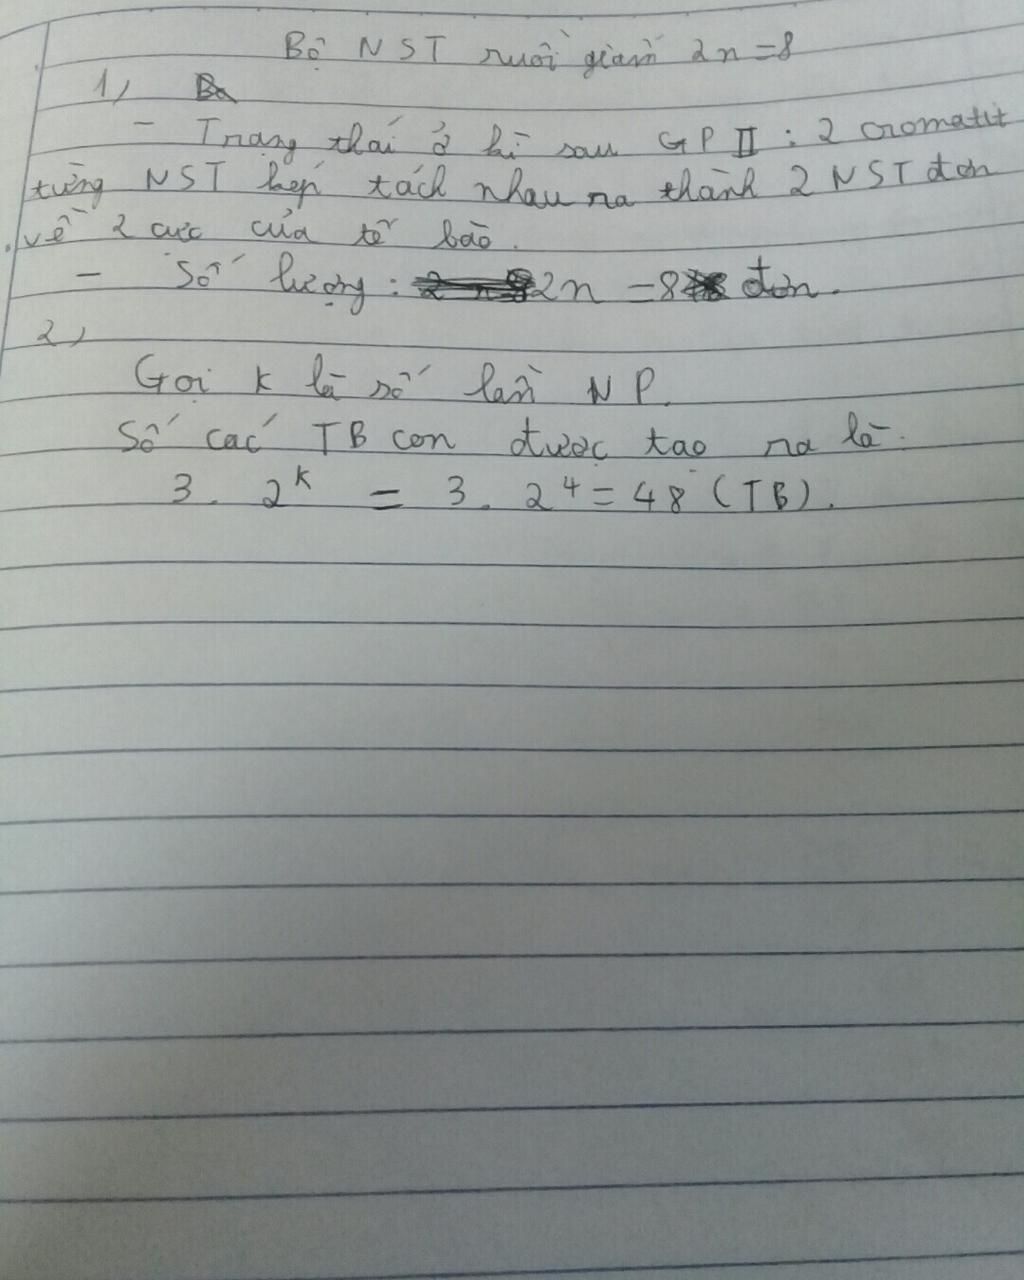 Bộ NST ruồi giấm 2n = 8
1,
- Trạng thái ở kì sau GP II : 2 cromatit
từng NST kép tách nhau ra thành 2 NST đơn
về 2 cực của tế bào.
- Số lượng : 2n = 8 đơn.
2,
Gọi k là số lần NP.
Số các TB con được tạo ra là.
3. 2^k = 3. 2^4 = 48 (TB).